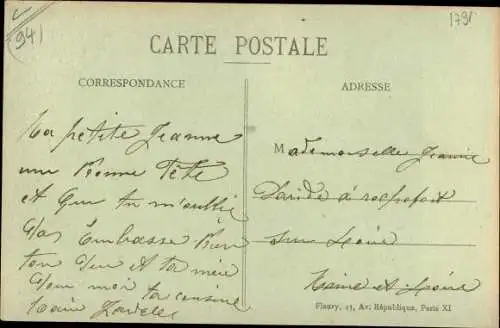 941
1791
CARTE POSTALE
CORRESPONDANCE
ADRESSE
Ma petite Jeanne
une Bonne Fête
et que tu m'oublie
pas Embrasse Bien
ton et ta mère
pour moi ta cousine
Mademoiselle Jeanne
à rochefort
sur Loire
Maine et Loire
Fleury, 17, Av. République, Paris XI